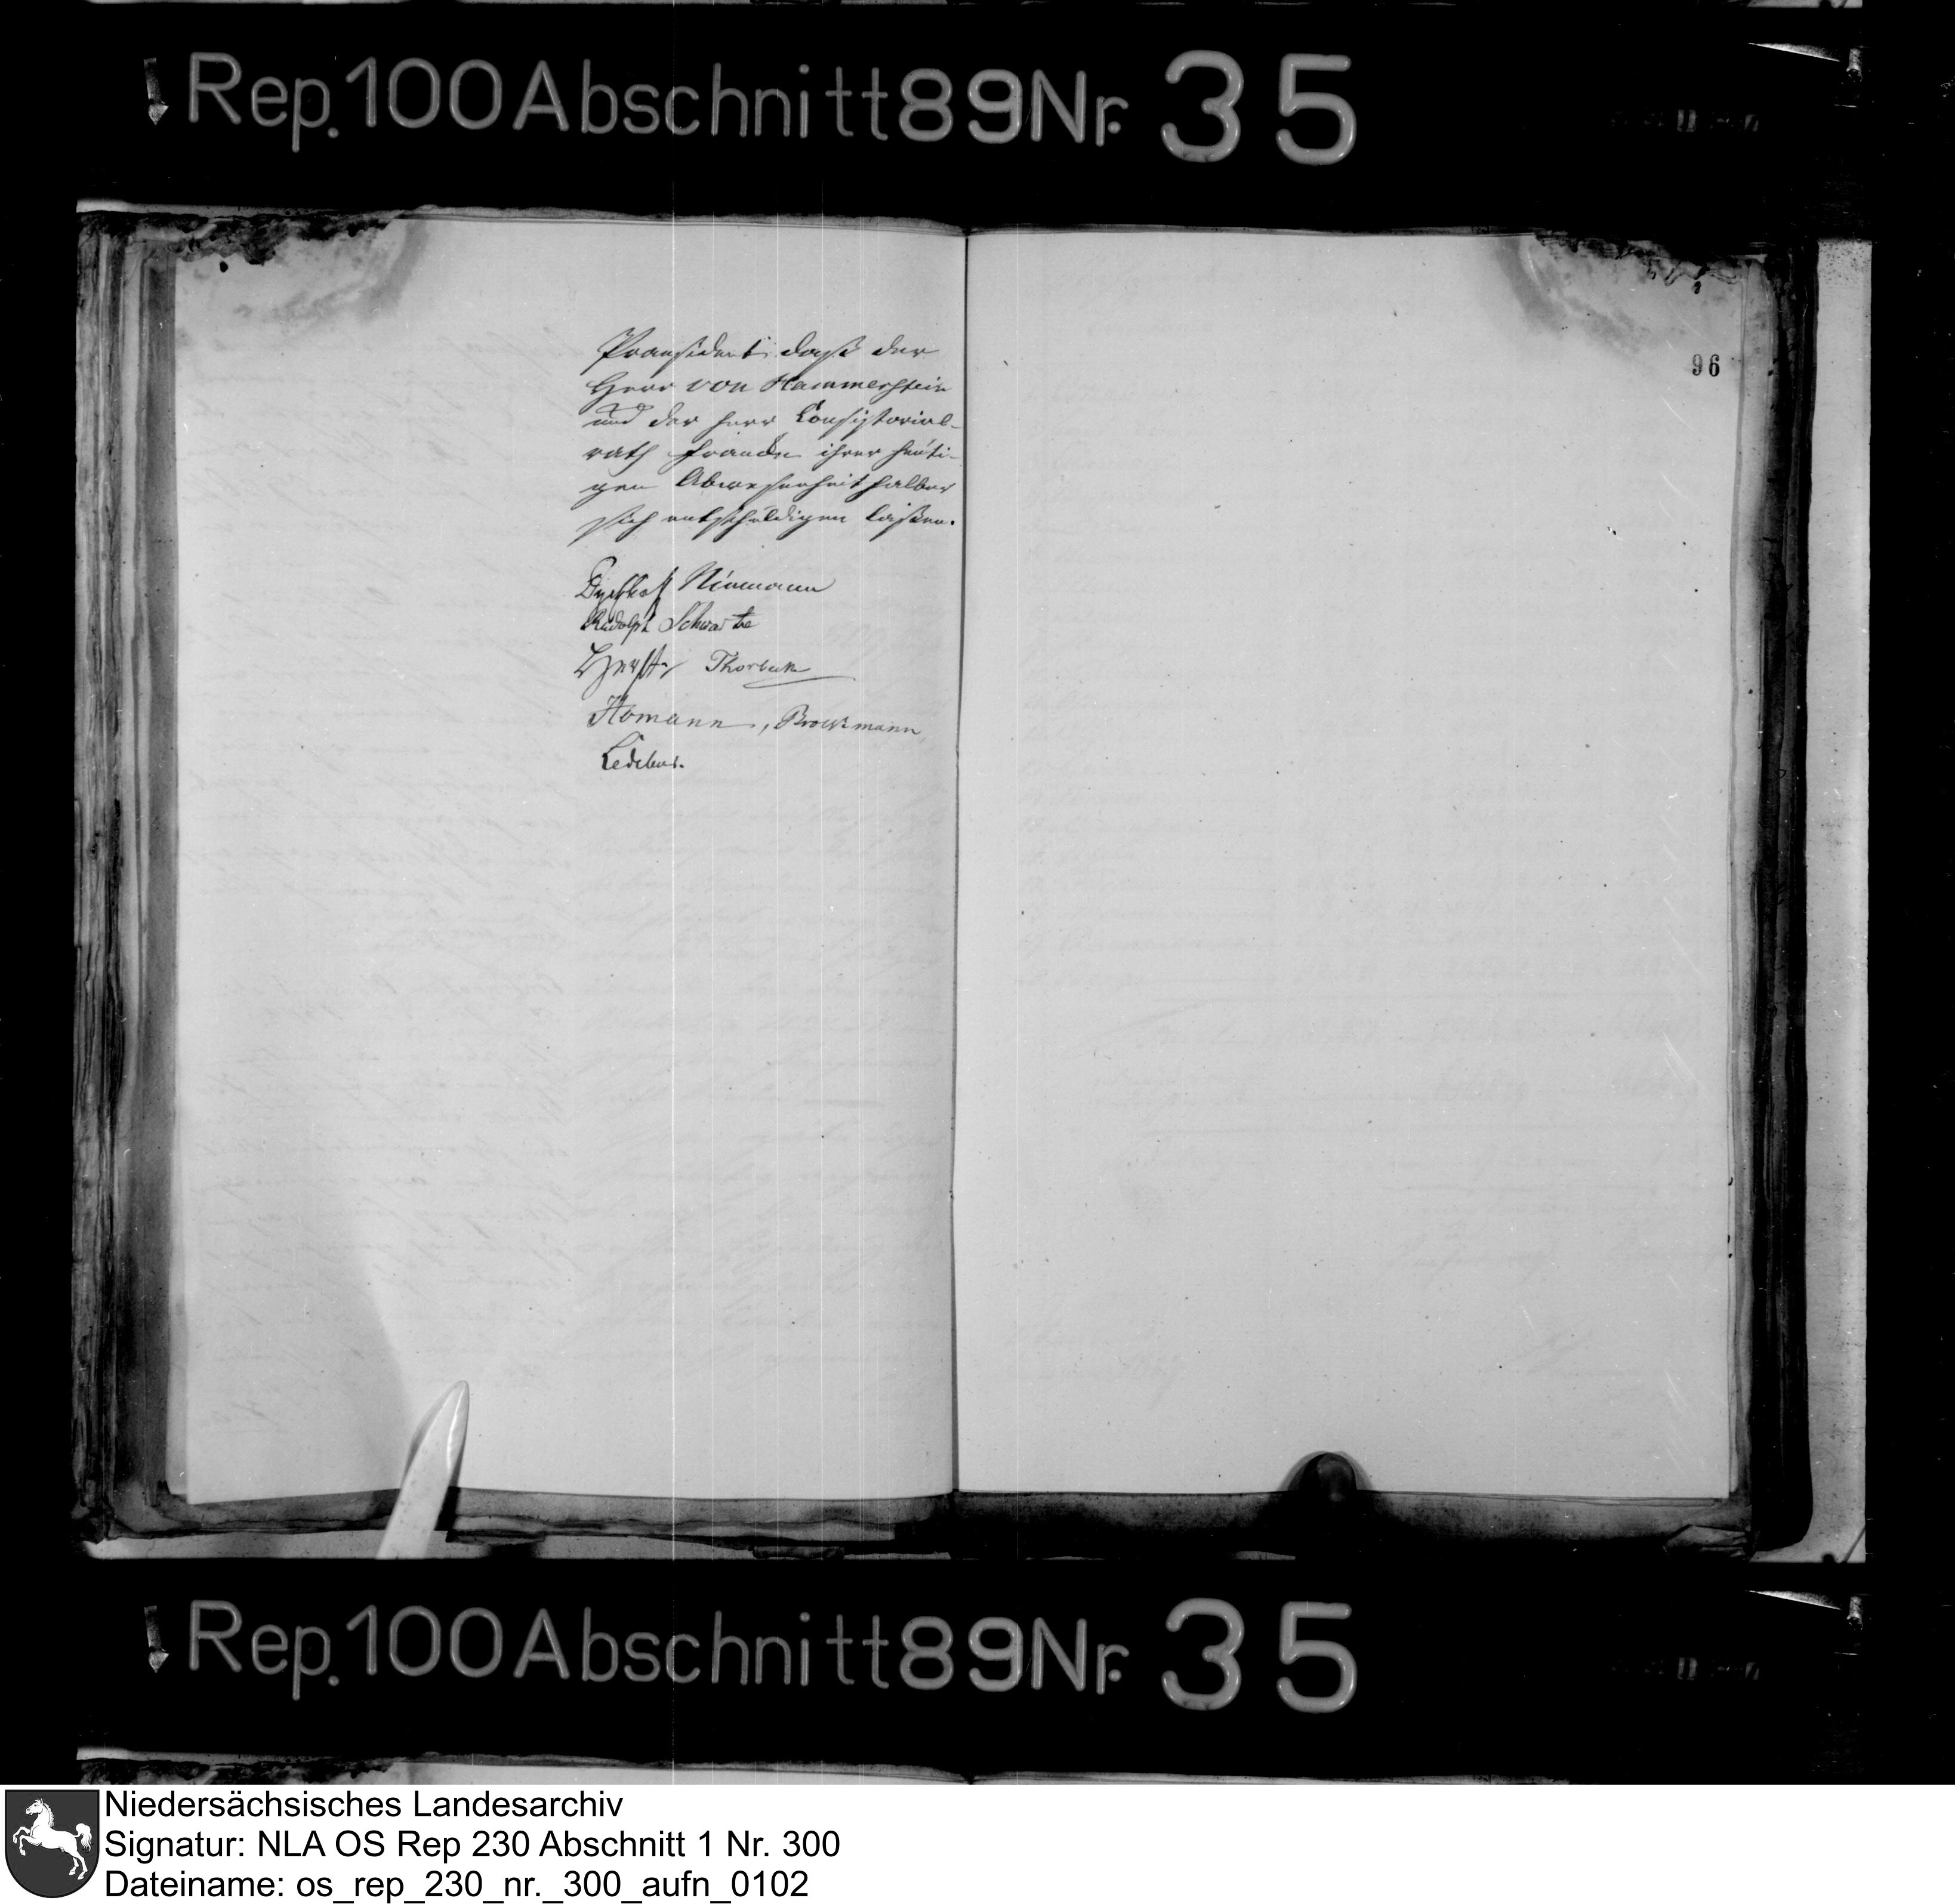 Rep. 100 Abschnitt 89 Nr. 35
Praesident, daß der
Herr von Hammerstein
und der Herr Consistorial-
rath ihrer heuti-
gen Abwesenheit halber
sich entschuldigen laßen.
Niemann
Rudolph Schwartze
Thorbeck
Homann, Brockmann,
Ledebur.
96
Rep. 100 Abschnitt 89 Nr. 35
Niedersächsisches Landesarchiv
Signatur: NLA OS Rep 230 Abschnitt 1 Nr. 300
Dateiname: os_rep_230_nr._300_aufn_0102